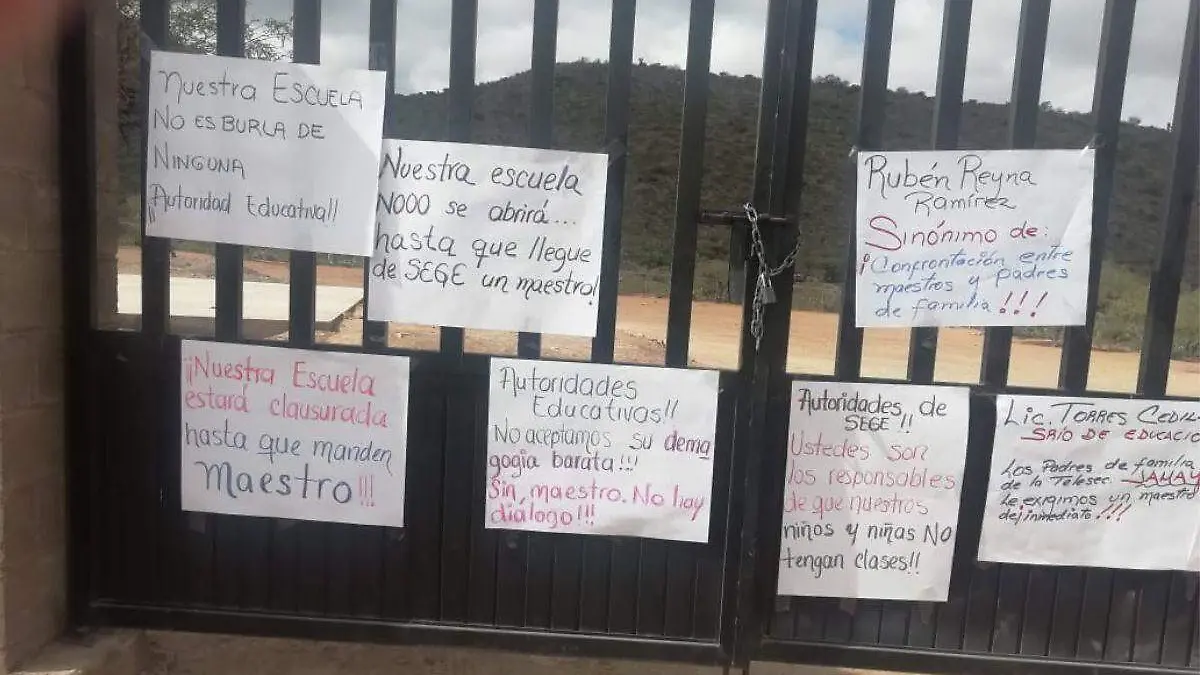 Nuestra ESCUELA
NO ES BURLA DE
NINGUNA
¡¡Autoridad Educativa!!
Nuestra escuela
NOOO se abrirá...
hasta que llegue
de SEGE un maestro!
Rubén Reyna
Ramírez
Sinónimo de:
¡Confrontación entre
maestros y padres
de familia!!!
¡¡Nuestra Escuela
estará clausurada
hasta que manden
Maestro!!!
Autoridades
Educativas!!
No aceptamos su dema
gogia barata!!!
Sin, maestro. No hay
diálogo!!!
Autoridades, de
SEGE!!
Ustedes son
los responsables
de que nuestros
niños y niñas No
tengan clases!!
Lic. TORRES CEDIL
SRIO DE EDUCACIO
Los Padres de familia
de la Telesec.
le exigimos un maestro
de inmediato!!!